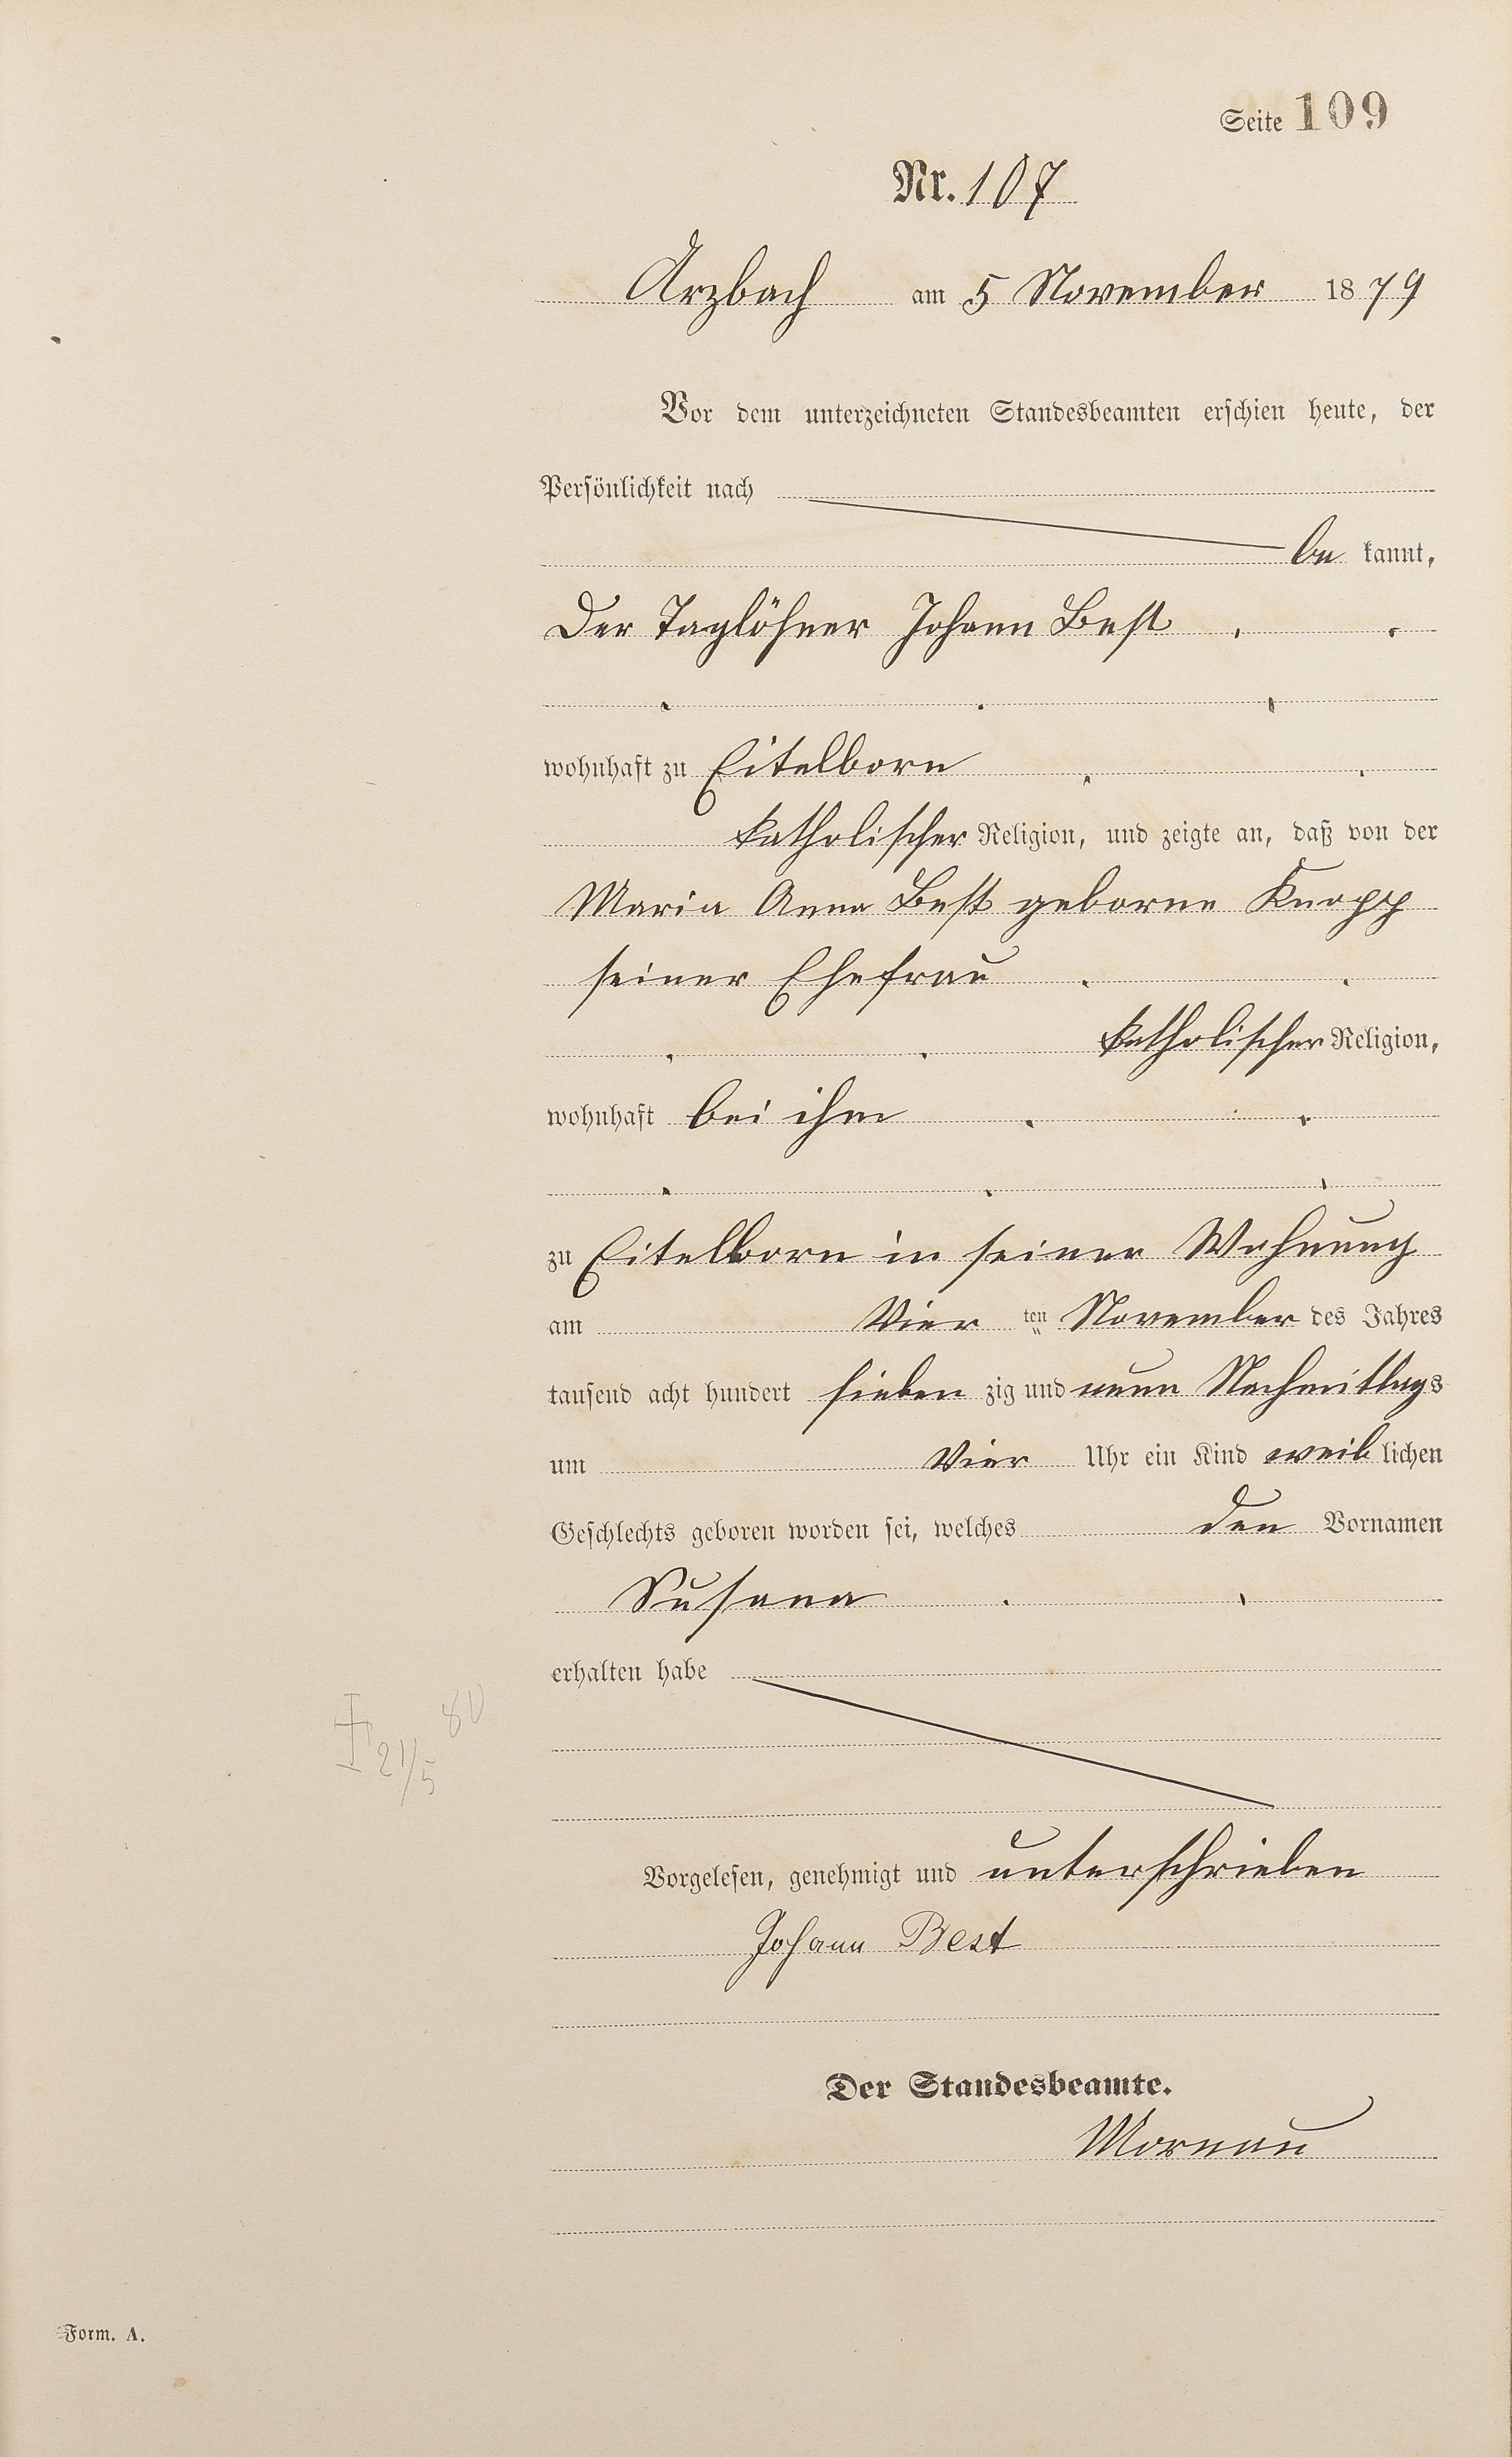 Seite 109
Nr. 107
Arzbach am 5 November 1879
Vor dem unterzeichneten Standesbeamten erschien heute, der
Persönlichkeit nach
be kannt,
Der Taglöhner Johann Best
wohnhaft zu Eitelborn
katholischer Religion, und zeigte an, daß von der
Maria Anna Best geborne Knopp
seiner Ehefrau
katholischer Religion,
wohnhaft bei ihm
zu Eitelborn in seiner Wohnung
am Vier ten November des Jahres
tausend acht hundert sieben zig und neun Nachmittags
um Vier Uhr ein Kind weib lichen
Geschlechts geboren worden sei, welches den Vornamen
Susana
erhalten habe
21/5 80
Vorgelesen, genehmigt und unterschrieben
Johann Best
Der Standesbeamte.
Mornau
Form. A.